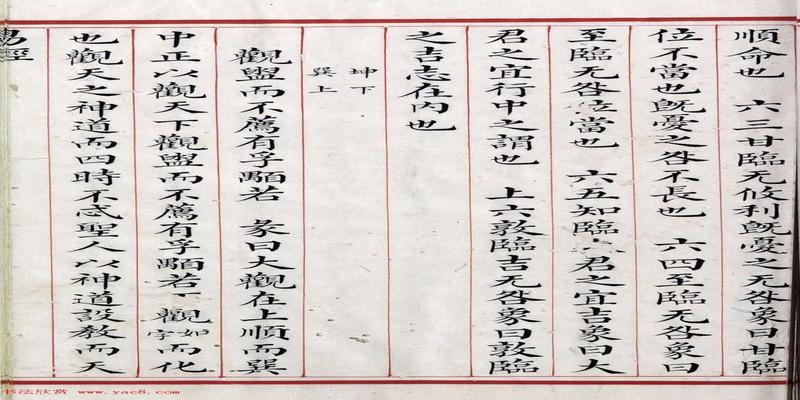 順命也　六三甘臨无攸利既憂之无咎象曰甘臨
位不當也既憂之咎不長也　六四至臨无咎象曰
至臨无咎位當也　六五知臨君之宜吉象曰大
君之宜行中之謂也　上六敦臨吉无咎象曰敦臨
之吉志在内也
坤下
巽上
觀盥而不薦有孚顒若　彖曰大觀在上順而巽
中正以觀天下觀盥而不薦有孚顒若、觀如字而化
也觀天之神道而四時不忒聖人以神道設教而天
易經
书法欣赏 www.yac8.com